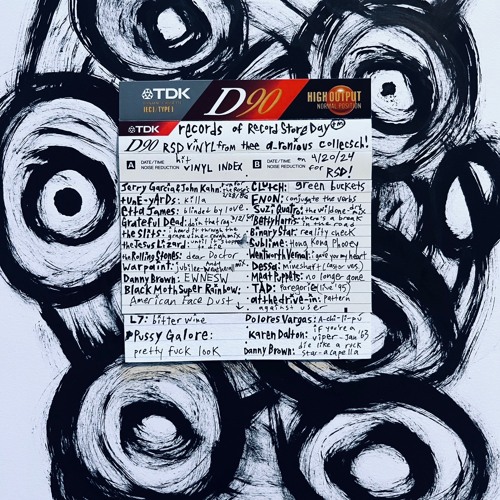 TDK
IECI TYPE I
D90
HIGH OUTPUT
NORMAL POSITION
TDK records of Record Store Day™
D90 RSD vinyl from thee a-ronious collecsh!
A DATE/TIME
NOISE REDUCTION
hit
VINYL INDEX
B DATE/TIME on 4/20/24
NOISE REDUCTION for RSD!
Jerry Garcia & John Kahn:
tUnE-yArDs: killa
Etta James: blinded by love
Grateful Dead: doin that rag
the Slits: heard it through the grapevine
the Jesus Lizard:
the Rolling Stones: dear Doctor
Warpaint: jubilee
Danny Brown: EWNESW
Black Moth Super Rainbow:
American Face Dust
L7: bitter wine
Pussy Galore:
pretty fuck look
CLUTCH: green buckets
ENON: conjugate the verbs
Suzi Quatro: the wild one
Betty Harris: there's a break in the road
Binary Star: reality check
Sublime: Hong Kong Phooey
Wentworth Vernal: gave you my heart
Dessa: mineshaft
Meat Puppets: no longer gone
TAD: Paregorie (live '95)
at the drive-in: pattern against user
Dolores Vargas: A-chi-li-pú
Karen Dalton: if you're a viper - Jan '63
Danny Brown: die like a rock star - acapella